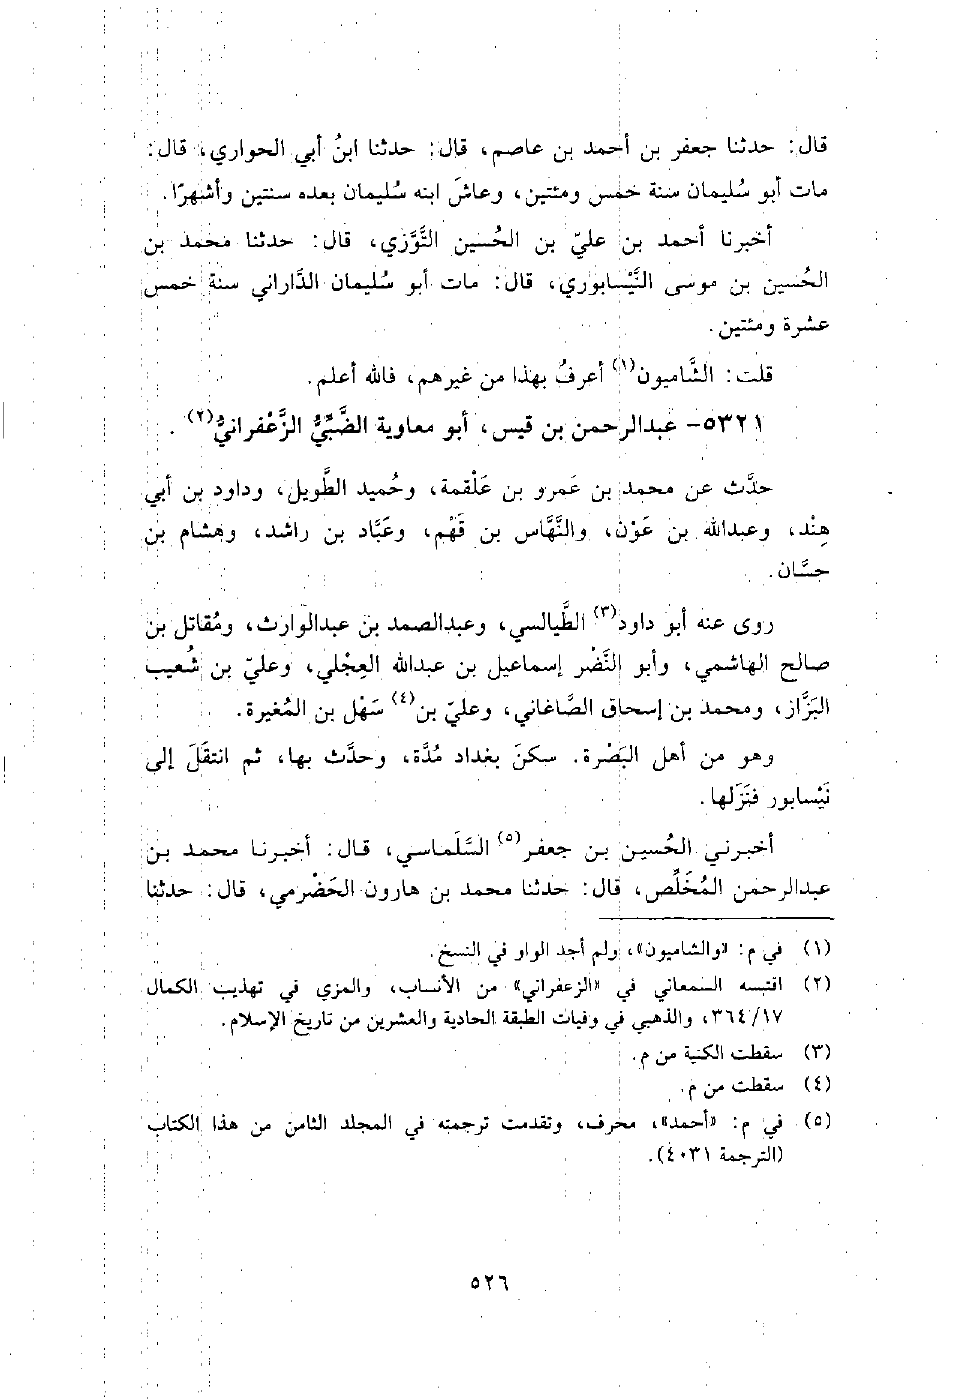 قال: حدثنا جعفر بن أحمد بن عاصم، قال: حدثنا ابنُ أبي الحواري، قال:
مات أبو سُليمان سنة خمس ومئتين، وعاشَ ابنه سُليمان بعده سنتين وأشهرًا.
أخبرنا أحمد بن عليّ بن الحُسين التَّوَّزي، قال: حدثنا محمد بن
الحُسين بن موسى النَّيْسابوري، قال: مات أبو سُليمان الدَّاراني سنة خمس
عشرة ومئتين.
قلت: الشَّاميون(١) أعرفُ بهذا من غيرهم، فالله أعلم.
٥٣٢١- عبدالرحمن بن قيس، أبو معاوية الضَّبِّيُّ الزَّعْفرانيُّ(٢).
حدَّث عن محمد بن عَمرو بن عَلْقمة، وحُميد الطَّويل، وداود بن أبي
هِنْد، وعبدالله بن عَوْن، والنَّهَّاس بن قَهْم، وعَبَّاد بن راشد، وهشام بن
حسَّان.
روى عنه أبو داود(٣) الطَّيالسي، وعبدالصمد بن عبدالوارث، ومُقاتل بن
صالح الهاشمي، وأبو النَّضْر إسماعيل بن عبدالله العِجْلي، وعليّ بن شُعيب
البَزَّاز، ومحمد بن إسحاق الصَّاغاني، وعليّ بن(٤) سَهْل بن المُغيرة.
وهو من أهل البَصْرة. سكنَ بغداد مُدَّة، وحدَّث بها، ثم انتقَلَ إلى
نَيْسابور فنَزَلها.
أخبرني الحُسين بن جعفر(٥) السَّلَماسي، قال: أخبرنا محمد بن
عبدالرحمن المُخَلِّص، قال: حدثنا محمد بن هارون الحَضْرمي، قال: حدثنا
(١) في م: «والشاميون»، ولم أجد الواو في النسخ.
(٢) اقتبسه السمعاني في «الزعفراني» من الأنساب، والمزي في تهذيب الكمال
٣٦٤/١٧، والذهبي في وفيات الطبقة الحادية والعشرين من تاريخ الإسلام.
(٣) سقطت الكنية من م.
(٤) سقطت من م.
(٥) في م: «أحمد»، محرف، وتقدمت ترجمته في المجلد الثامن من هذا الكتاب
(الترجمة ٤٠٣١).
٥٢٦